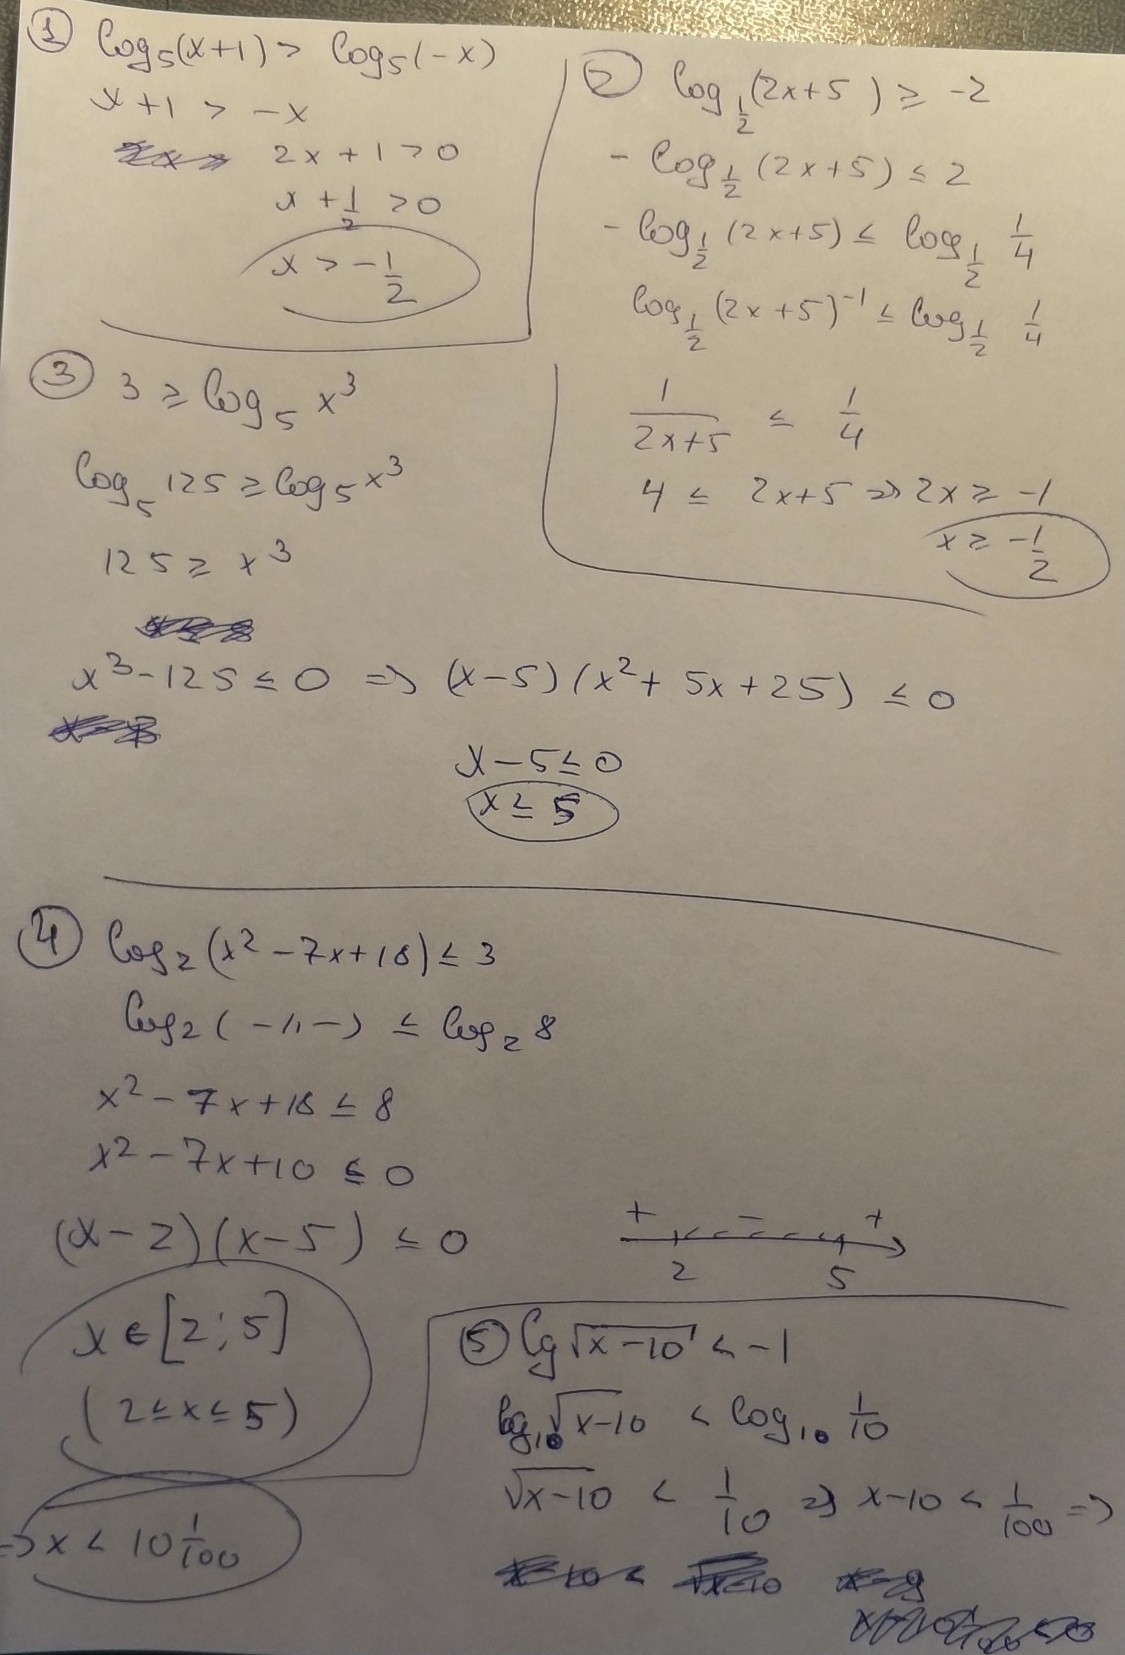 ① log₅(x+1) > log₅(-x)
x+1 > -x
2x+1>0
x+1/2 >0
x > -1/2
② log_{1/2}(2x+5) ≥ -2
- log_{1/2}(2x+5) ≤ 2
- log_{1/2}(2x+5) ≤ log_{1/2} 1/4
log_{1/2}(2x+5)⁻¹ ≤ log_{1/2} 1/4
1/(2x+5) ≤ 1/4
4 ≤ 2x+5 => 2x ≥ -1
x ≥ -1/2
③ 3 ≥ log₅ x³
log₅ 125 ≥ log₅ x³
125 ≥ x³
x³-125 ≤ 0 => (x-5)(x²+5x+25) ≤ 0
x-5 ≤ 0
x ≤ 5
④ log₂(x²-7x+18) ≤ 3
log₂(-//-) ≤ log₂ 8
x²-7x+18 ≤ 8
x²-7x+10 ≤ 0
(x-2)(x-5) ≤ 0
+ - +
2 5
x ∈ [2; 5]
(2 ≤ x ≤ 5)
⑤ lg √(x-10) < -1
log₁₀ √(x-10) < log₁₀ 1/10
√(x-10) < 1/10 => x-10 < 1/100 =>
=> x < 10 1/100